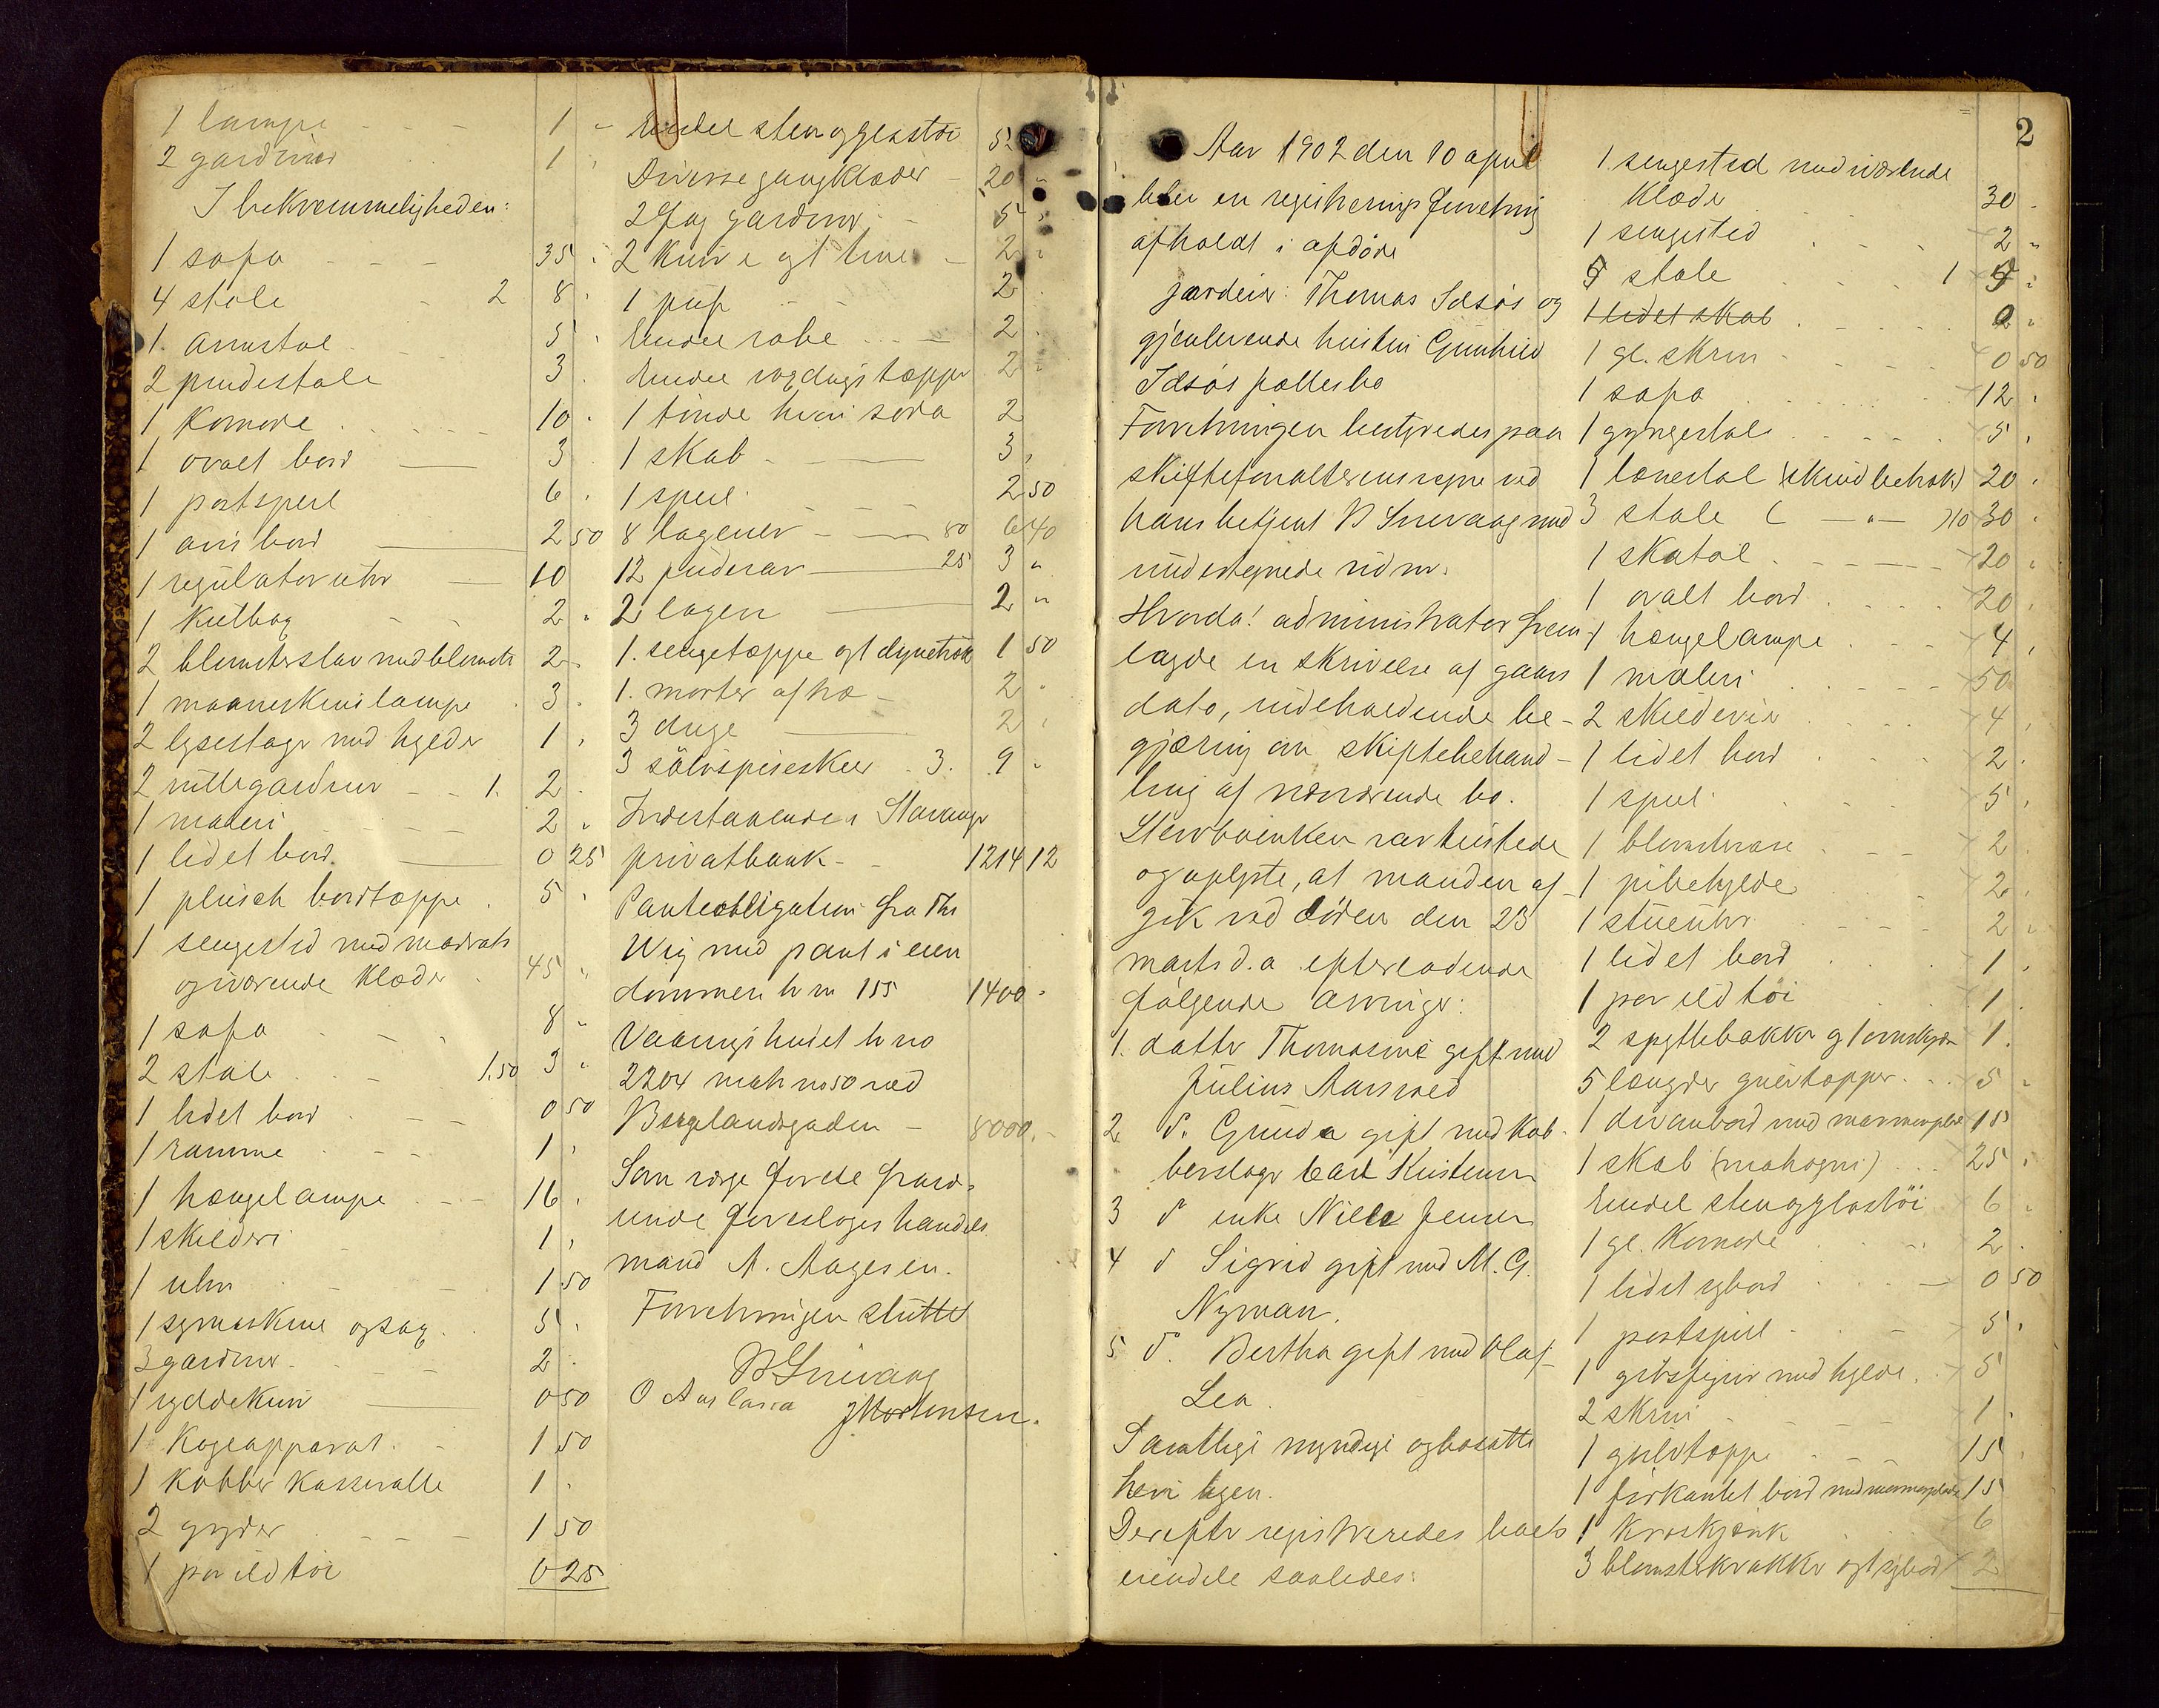 1 lampe 1 "
2 gardiner 1 "
I bekvemmeligheden:
1 sofa 35 "
4 stole 2 8 "
1. armstol 5 "
2 pindestole 3 "
1 Komode 10 "
1 ovalt bord 3 "
1 postspeil 6 "
1 avis bord 2 50
1 regulator uhr 10
1 2 "
2 blomsterstav med blomster 2 "
1 maaneskins lampe 3 "
2 lysestager med hylder 1 "
2 rullegardiner 1. 2 "
1 maleri 2 "
1 lidet bord 0 25
1 plüsch bordtæppe 5 "
1 sengested med madrats
og iværende klæder 45 "
1 sofa 8 "
2 stole 1.50 3 "
1 lidet bord 0 50
1 ramme 1 "
1 hængelampe 16 "
1 skilderi 1 "
1 uhr 1 50
1 symaskine og sag 5 "
3 gardiner 2 "
1 0 50
1 Kogeapparat 1 50
1 Kobber Kasserolle 1 "
2 gryder 1 50
1 par ildtøi 0 25
Endel sten og glastøi 5
Diverse gangklæder 20 "
2 fag gardiner 5 "
2 kurve og 1 2 "
1 puf 2 "
Endel 2 "
Endel voxdugs tæpper 2 "
1 tønde hvori soda 2
1 skab 3 "
1 speil 2 50
8 lagener 80 6 40
12 pudevar 25 3 "
2 lagen 2 "
1. sengetæppe og 1 dynetræk 1 50
1. morter af træ 2 "
3 duge 2 "
3 sølvspiseskeer 3. 9 "
Indestaaende i Stavanger
privatbank 1214 12
Panteobligation fra Ths
Wig med pant i eien
dommen br no 155 1400 "
Vaaningshuset br no
2204 matr no 50 ved
Bergelandsgaden 8000.-
Som værge for de fravæ-
rende foresloges handels
mand A. Aagesen.
Forretningen sluttet
B Snevaag
O Aaslasra JMortensen.
2
Aar 1902 den 10 april
blev en registreringsforretning
afholdt i afdøde
gardeier Thomas Idsøs og
gjenlevende hustru Gunhild
Idsøs fællesbo
Forretningen bestyredes paa
skifteforvalterens vegne ved
hans betjent B Snevaag med
undertegnede vidner.
Hvorda! administrator frem-
lagde en skrivelse af gaars
dato, indeholdende be-
gjæring om skiftebehand-
ling af nærværende bo.
Sterboenken var tilstede
og oplyste, at manden af-
gik ved døden den 23
marts d.a. efterladende
følgende arvinger:
1. datter Thomasine gift med
Julius Aarsved
2 d. Gunda gift med Kob-
berslager Carl Kristensen
3 d enke Nille Jensen
4 d Sigrid gift med M. G.
Nyman.
5 d. Bertha gift med Olaf
Lea
Samtlige myndige og bosatte
her i byen.
Derefter registreredes boets
eiendele saaledes:
1 sengested med iværende
Klæder 30 "
1 sengested 2 "
5 stole 1 5 "
1 lidet skab "
1 gl. skrin 0 50
1 sofa 12 "
1 gyngestol 5 "
1 lænestol (skind betræk) 20 "
3 stole ( — " — ) 10 30 "
1 skatol 20 "
1 ovalt bord 20 "
1 hængelampe 4 "
1 maleri 50
2 skilderier 4 "
1 lidet bord 2 "
1 speil 5 "
1 blomstervase 2 "
1 pibehylde 2 "
1 stueuhr 2 "
1 lidet bord 1 "
1 par ildtøi 1 "
2 spyttebakker og 1 ovnskjærm 1 "
5 længder gulvtæpper 5 "
1 divanbord med marmorplade 15
1 skab (mahogni) 25 "
Endel sten og glastøi 6 "
1 gl. Komode 2 "
1 lidet sybord 0 50
1 postspeil 5 "
1 gibsfigur med hylde 5
2 skrin 1 "
1 gulvtæppe 15 "
1 firkantet bord med marmorplade 15
1 Kroskjænk 6
3 blomsterkrakker og 1 sybord 2